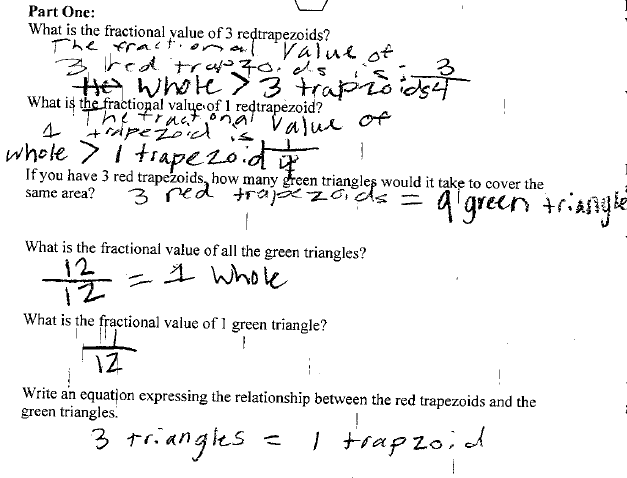 Part One:
What is the fractional value of 3 redtrapezoids?
The fractional value of
3 red trapzoids is = 3/4
whole > 3 trapzoids
What is the fractional value of 1 redtrapezoid?
The fractional value of
1 trapezoid is 1/4
whole > 1 trapezoid
If you have 3 red trapezoids, how many green triangles would it take to cover the
same area? 3 red trapezoids = 9 green triangle
What is the fractional value of all the green triangles?
12/12 = 1 whole
What is the fractional value of 1 green triangle?
1/12
Write an equation expressing the relationship between the red trapezoids and the
green triangles.
3 triangles = 1 trapzoid